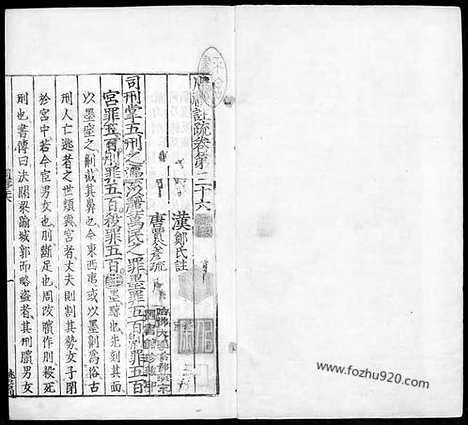 周禮註疏卷第三十六
漢鄭氏註
唐賈公彥疏
司刑掌五刑之灋以麗萬民之罪墨罪五百劓罪五百
宮罪五百刖罪五百殺罪五百墨黥也先刻其面
以墨窒之劓截其鼻也今東西夷或以墨劓為俗古
刑人亡逃者之世類與宮者丈夫則割其勢女子閉
於宮中若今宦男女也刖斷足也周改臏作刖殺死
刑也書傳曰決關梁踰城郭而略盜者其刑臏男女
https://www.fozhu920.com